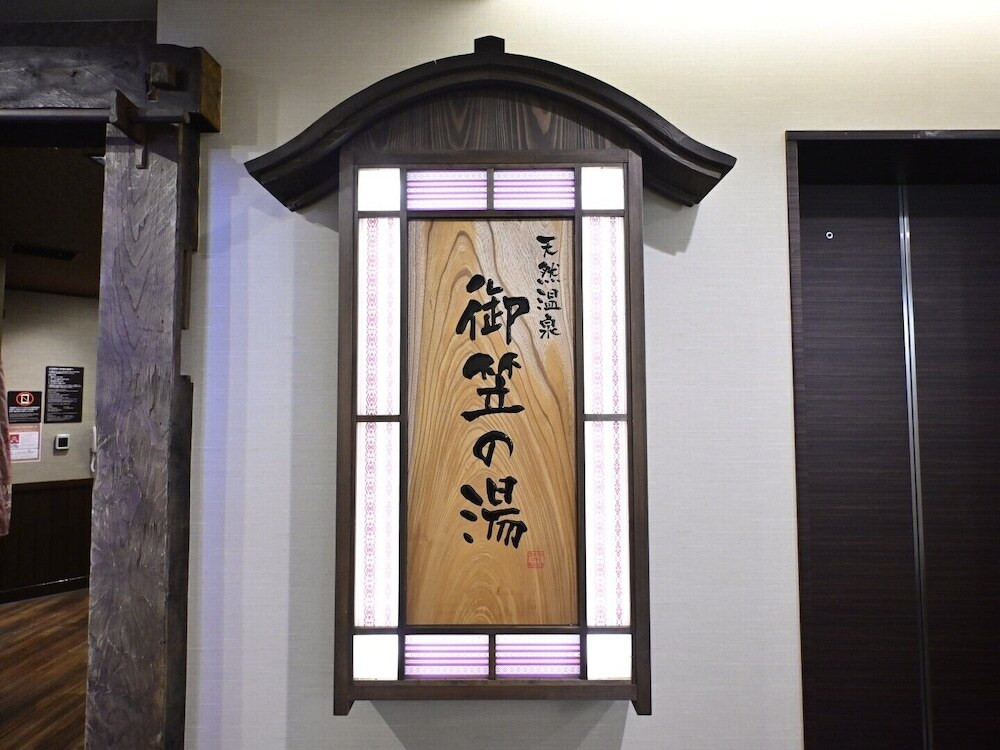 天然温泉
御笠の湯